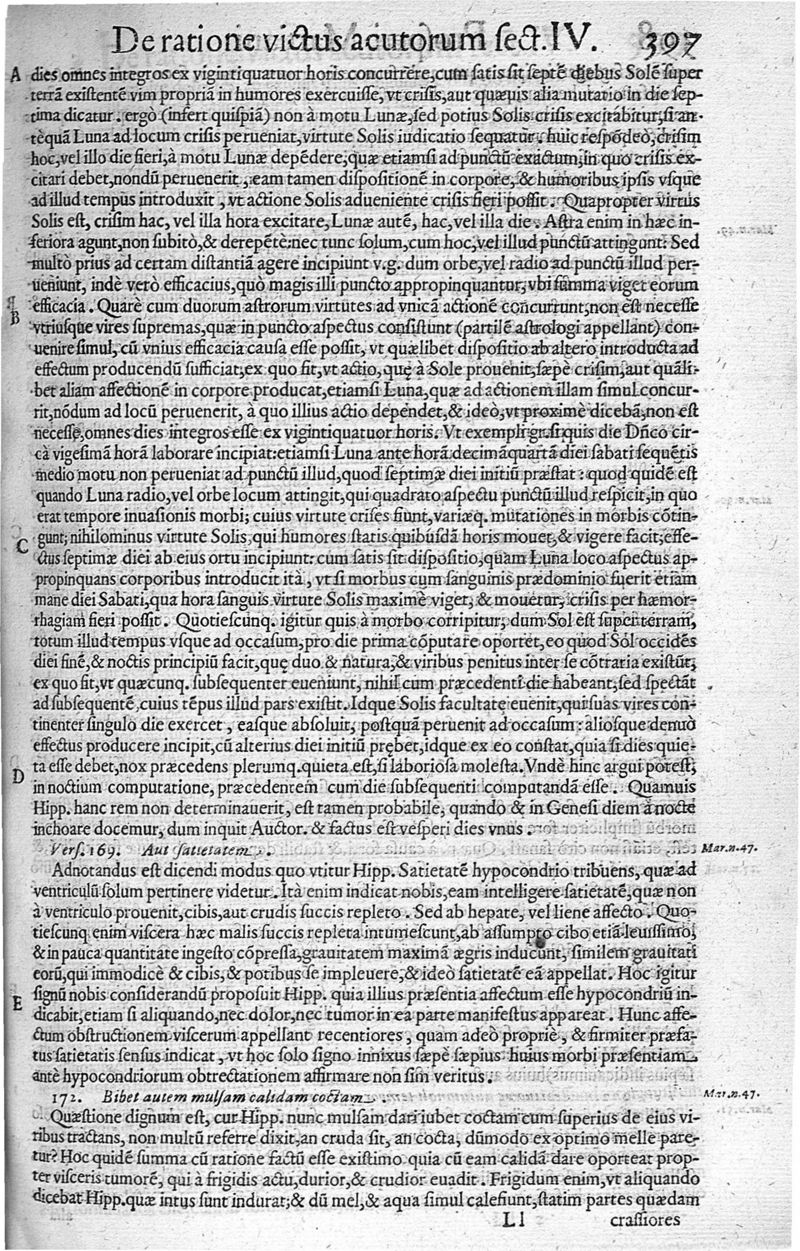 De ratione victus acutorum sect. IV. 397
A dies omnes integros ex vigintiquatuor horis concurrere, cum satis sit septē diebus Solē super
terrā existentē vim propriā in humores exercuisse, vt crisis, aut quæuis alia mutatio in die sep-
tima dicatur. ergò (infert quispiā) non à motu Lunæ, sed potius Solis crisis excitabitur, si an-
tequā Luna ad locum crisis perueniat, virtute Solis iudicatio sequatur. huic respōdeò, crisim
hoc, vel illo die fieri, à motu Lunæ depēdere, quæ etiamsi ad punctū exactum, in quo crisis ex-
citari debet, nondū peruenerit, eam tamen dispositionē in corpore, & humoribus ipsis vsque
ad illud tempus introduxit, vt actione Solis adueniente crisis fieri possit. Quapropter virtus
Solis est, crisim hac, vel illa hora excitare, Lunæ autē, hac, vel illa die. Astra enim in hæc in-
feriora agunt, non subitò, & derepētè: nec tunc solum, cum hoc, vel illud punctū attingunt: Sed
multò prius ad certam distantiā agere incipiunt v.g. dum orbe, vel radio ad punctū illud per-
ueniunt, indè verò efficacius, quò magis illi puncto appropinquantur, vbi summa viget eorum
B efficacia. Quarè cum duorum astrorum virtutes ad vnicā actionē concurrunt, non est necesse
vtriusque vires supremas, quæ in puncto aspectus consistunt (partilē astrologi appellant) con-
uenire simul, cū vnius efficacia causa esse possit, vt quælibet dispositio ab altero introducta ad
effectum producendū sufficiat; ex quo fit, vt actio, quę à Sole prouenit, sæpè crisim, aut quāli-
bet aliam affectionē in corpore producat, etiamsi Luna, quæ ad actionem illam simul concur-
rit, nōdum ad locū peruenerit, à quo illius actio dependet, & ideò, vt proximè dicebā, non est
necesse, omnes dies integros esse ex vigintiquatuor horis. Vt exempli gr. si quis die Dn̄co cir-
cà vigesimā horā laborare incipiat: etiamsi Luna ante horā decimāquartā diei sabati sequētis
medio motu non perueniat ad punctū illud, quod septimæ diei initiū præstat: quod quidē est
quando Luna radio, vel orbe locum attingit, qui quadrato aspectu punctū illud respicit, in quo
erat tempore inuasionis morbi; cuius virtute crises fiunt, variæq. mutationes in morbis cōtin-
C gunt; nihilominus virtute Solis, qui humores statis quibusdā horis mouet, & vigere facit; effe-
ctus septimæ diei ab eius ortu incipiunt: cum satis sit dispositio, quam Luna loco aspectus ap-
propinquans corporibus introducit ità, vt si morbus cum sanguinis prædominio fuerit etiam
mane diei Sabati, qua hora sanguis virtute Solis maximè viget, & mouetur, crisis per hæmor-
rhagiam fieri possit. Quotiescunq. igitur quis à morbo corripitur, dum Sol est super terram,
totum illud tempus vsque ad occasum, pro die prima cōputare oportet, eo quod Sol occidēs
diei finē, & noctis principiū facit, quę duo & natura, & viribus penitus inter se cōtraria existūt,
ex quo fit, vt quæcunq. subsequenter eueniunt, nihil cum præcedenti die habeant, sed spectāt
ad subsequentē, cuius tēpus illud pars existit. Idque Solis facultate euenit, qui suas vires con-
tinenter singulo die exercet, easque absoluit, postquā peruenit ad occasum: aliosque denuò
effectus producere incipit, cū alterius diei initiū prębet, idque ex eo constat, quia si dies quie-
ta esse debet, nox præcedens plerumq. quieta est, si laboriosa molesta. Vndè hinc argui potest,
D in noctium computatione, præcedentem cum die subsequenti computandā esse. Quamuis
Hipp. hanc rem non determinauerit, est tamen probabile, quando & in Genesi diem à nocte
inchoare docemur, dum inquit Auctor. & factus est vesperi dies vnus.
Vers. 169. Aut satietatem. Mar.n.47.
Adnotandus est dicendi modus quo vtitur Hipp. Satietatē hypocondrio tribuens, quæ ad
ventriculū solum pertinere videtur. Ità enim indicat nobis, eam intelligere satietatē, quæ non
à ventriculo prouenit, cibis, aut crudis succis repleto. Sed ab hepate, vel liene affecto. Quo-
tiescunq. enim viscera hæc malis succis repleta intumescunt, ab assumpto cibo etiā leuissimo,
& in pauca quantitate ingesto cōpressa, grauitatem maximā ægris inducunt, similem grauitati
eorū, qui immodicè & cibis, & potibus se impleuere, & ideò satietatē eā appellat. Hoc igitur
E signū nobis considerandū proposuit Hipp. quia illius præsentia affectum esse hypocondriū in-
dicabit, etiam si aliquando, nec dolor, nec tumor in ea parte manifestus appareat. Hunc affe-
ctum obstructionem viscerum appellant recentiores, quam adeò propriè, & firmiter præfa-
tus satietatis sensus indicat, vt hoc solo signo innixus sæpè sæpius huius morbi præsentiam
antè hypocondriorum obtrectationem affirmare non sim veritus.
172. Bibet autem mulsam calidam coctam. Mar.n.47.
Quæstione dignum est, cur Hipp. nunc mulsam dari iubet coctam cum superius de eius vi-
ribus tractans, non multū referre dixit, an cruda sit, an cocta, dūmodo ex optimo melle pare-
tur? Hoc quidē summa cū ratione factū esse existimo quia cū eam calidā dare oporteat prop-
ter visceris tumorē, qui à frigidis actu, durior, & crudior euadit. Frigidum enim, vt aliquando
dicebat Hipp. quæ intus sunt indurat; & dū mel, & aqua simul calefiunt, statim partes quædam
Ll crassiores